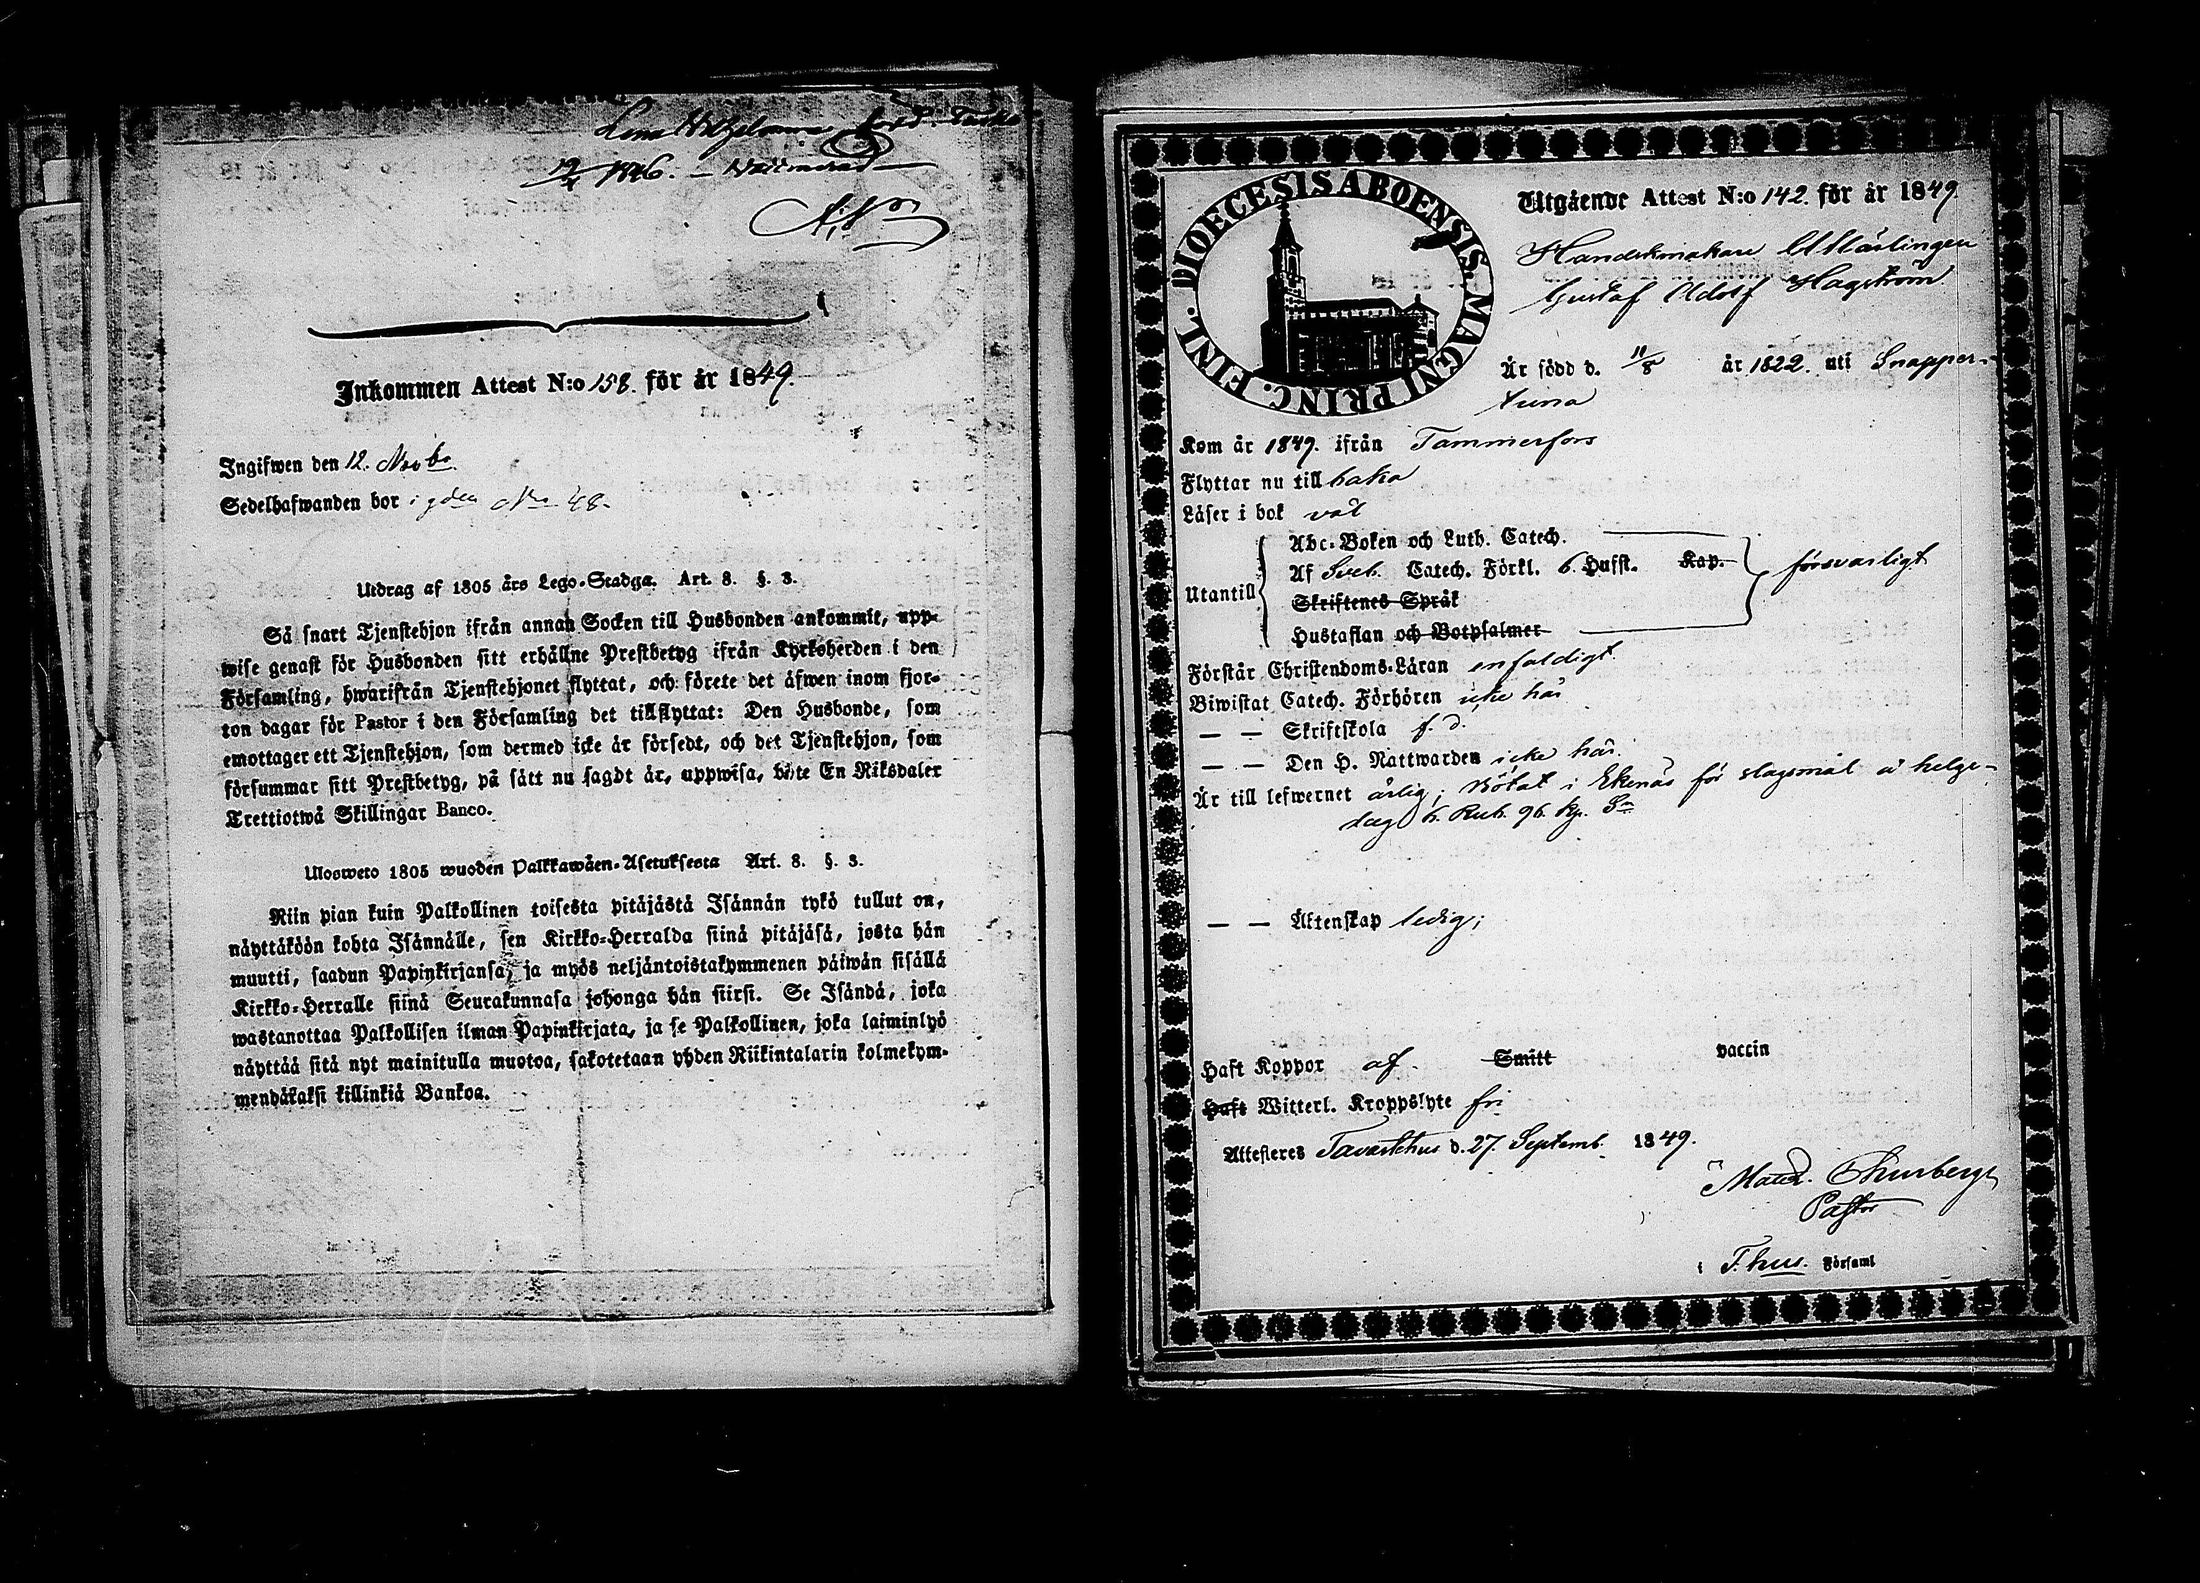 Lena
19/x 1846.
Inkommen Attest N:o 158. för år 1849.
Ingifwen den 12. Novbr.
Sedelhafwanden bor i gden No 48.
Utdrag af 1805 års Lego-Stadga. Art. 8. §. 3.
Så snart Tjenstehjon ifrån annan Socken till Husbonden ankommit, upp-
wise genast för Husbonden sitt erhållne Prestbetyg ifrån Kyrkoherden i den
Församling, hwarifrån Tjenstehjonet flyttat, och förete det äfwen inom fjor-
ton dagar för Pastor i den Församling det tillflyttat: Den Husbonde, som
emottager ett Tjenstehjon, som dermed icke är försedt, och det Tjenstehjon, som
försummar sitt Prestbetyg, på sätt nu sagdt är, uppwisa, böte En Riksdaler
Trettiotwå Skillingar Banco.
Ulosweto 1805 wuoden Palkkawäen-Asetuksesta Art. 8. §. 3.
Niin pian kuin Palkollinen toisesta pitäjästä Isännän tykö tullut on,
näyttäköön kohta Isännälle, sen Kirkko-Herralda siinä pitäjäsä, josta hän
muutti, saadun Papinkirjansa, ja myös neljäntoistakymmenen päiwän sisällä
Kirkko-Herralle siinä Seurakunnasa johonga hän siirsi. Se Isändä, joka
wastanottaa Palkollisen ilman Papinkirjata, ja se Palkollinen, joka laiminlyö
näyttää sitä nyt mainitulla muotoa, sakotetaan yhden Riikintalarin kolmekym-
mendäkaksi killinkiä Bankoa.
DIOECESIS ABOENSIS. MAGNI PRINC. FINL.
Utgående Attest N:o 142. för år 1849.
Handskmakare Lärlingen
Gustaf Adolf Hagström
Är född d. 11/8 år 1822. uti Snapper-
tuna
Kom år 1849. ifrån Tammerfors
Flyttar nu till baka
Läser i bok väl
Utantill
Abc-Boken och Luth. Catech.
Af Sveb. Catech. Förkl. 6. Hufst. Kap. försvarligt
Skriftenes Språk
Hustaflan och Botpsalmer
Förstår Christendoms-Läran enfaldigt.
Biwistat Catech. Förhören icke här
— — Skriftskola f. d.
— — Den H. Nattwarden icke här.
Är till lefwernet ärlig; Bötat i Ekenäs för slagsmål å helge-
dag 6. Rub. 96. kp. Sr
— — Äktenskap ledig;
Haft Koppor af. Smitt vaccin
Haft Witterl. Kroppslyte fri
Attesteres Tavastehus d. 27. Septemb. 1849.
Thurberg
Pastor
i T.hus. Församl